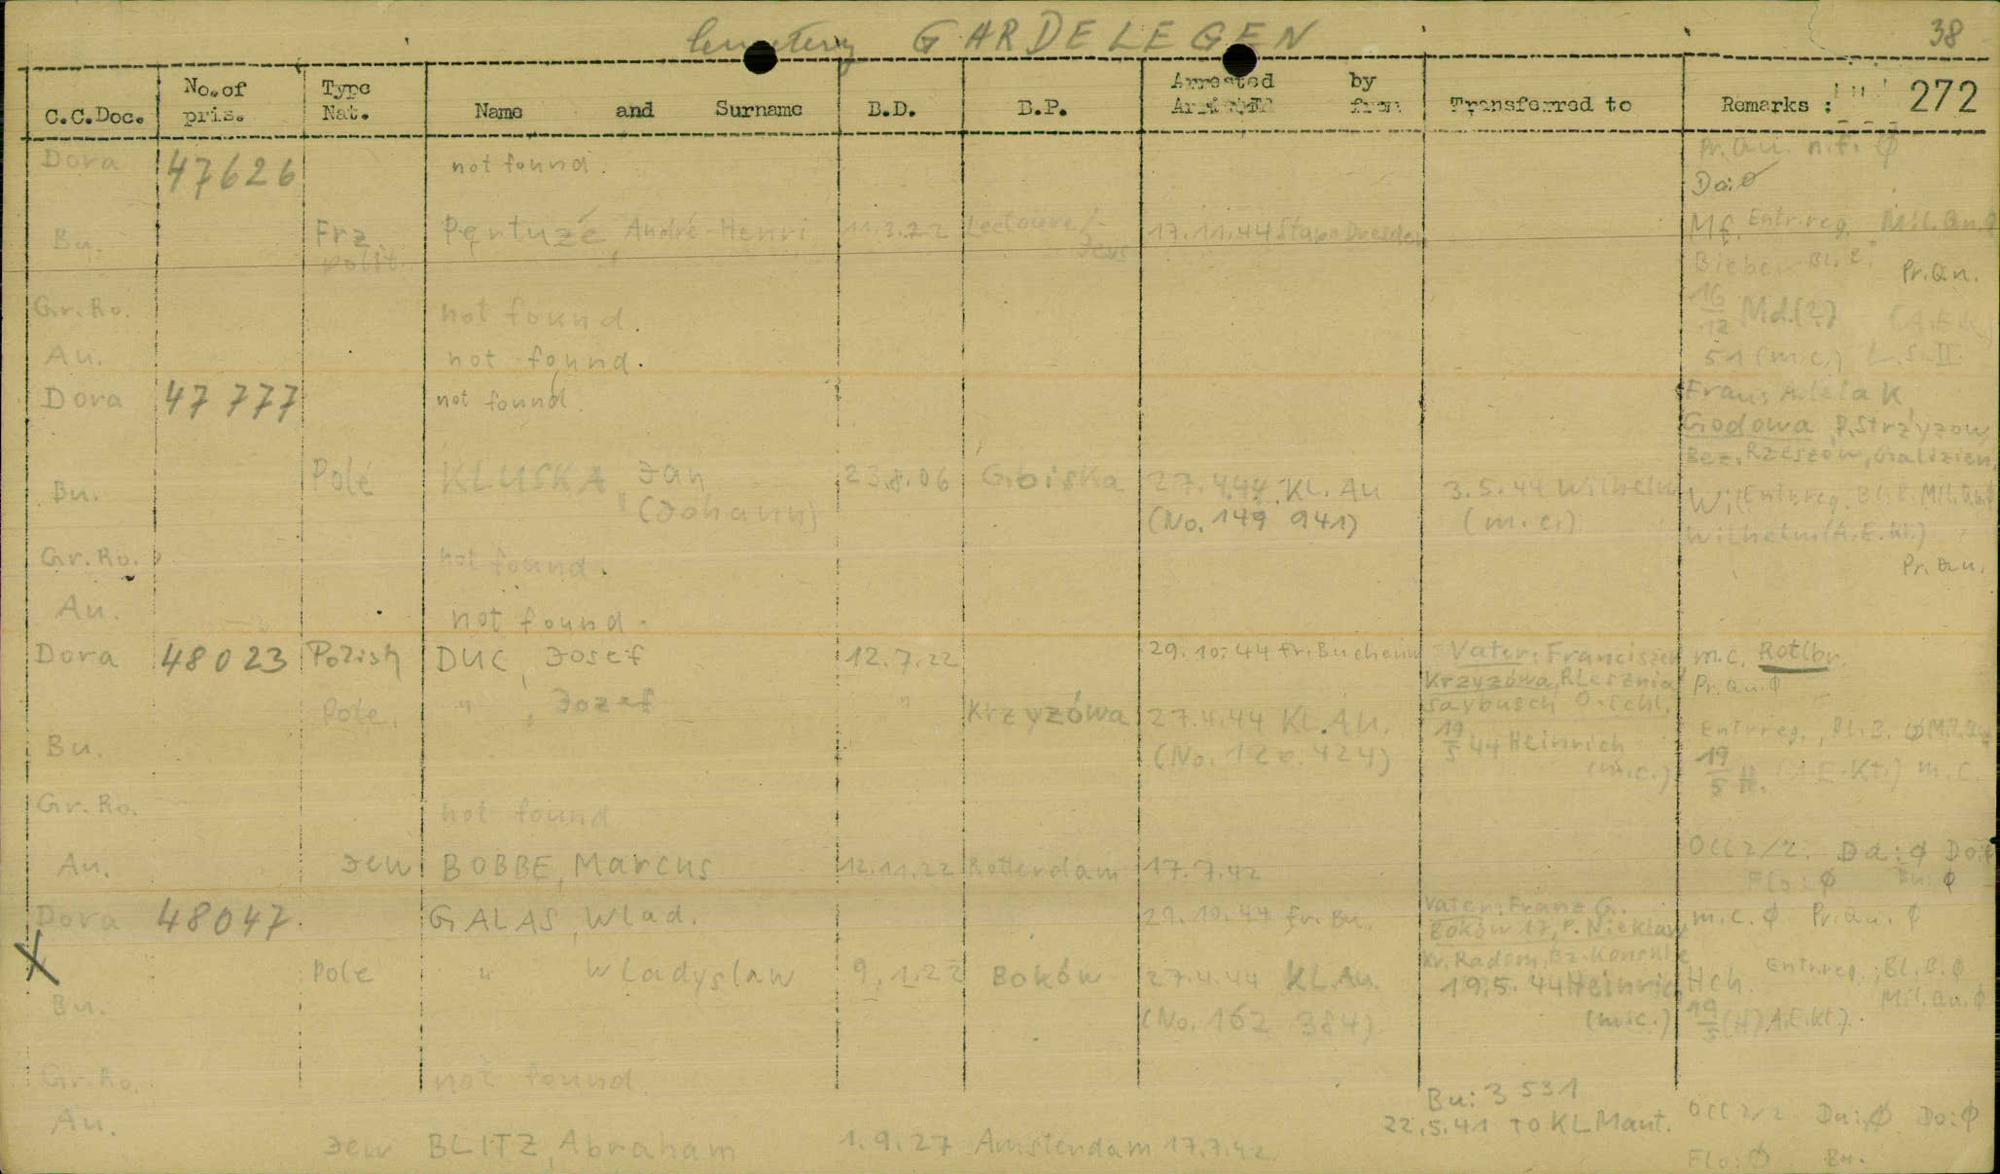 cemetery GARDELEGEN 38
C.C.Doc. No.of pris. Type Nat. Name and Surname B.D. B.P. Arrested by from Transferred to Remarks : 272
Dora 47626 not found. Pr.Qu. n.f. Ø
Do: Ø
Bu. Frz. polit. Pertuzé, André-Henri 11.3.22 Lectoure/Gers 17.11.44 Stapo Dresden Mf. Entr.reg. Mil.Qu. Ø
Bl. B. Pr.Qu.
Gr.Ro. not found. 16/12 Md.(?)
Au. not found. 51 (m.c.) L.S.II
Dora 47 777 not found. Frau: Adela K
Godowa, P. Strzyzow,
Bez. Rzeszow, Galizien.
Bu. Pole KLUSKA Jan 23.8.06 27.4.44 KL. Au 3.5.44 Wilhelm Entr.reg. Bl.B. Mil.Qu.
" (Johann) (No. 149 941) (m.c.) Wilhelm (A.E.Kt.)
Gr.Ro. not found. Pr.Qu.
Au. not found.
Dora 48 023 Polish DUC, Josef 12.7.22 29.10.44 fr. Buchenw Vater: Franciszek m.c. Rotlbr.
Krzyzówa, P. Pr.Qu. Ø
Saybusch O.Schl.
Pole. " , Jozef " Krzyzówa 27.4.44 KL.Au. 19/5 44 Heinrich Entrreg., Bl.B. Ø Mil.Qu.
Bu. (No. 120.424) (m.c.) 19/5 H. (A.E.Kt.) m.c.
Gr.Ro. not found
Au. Jew BOBBE, Marcus 12.11.22 Rotterdam 17.7.42 Occ 2/2. Da: Ø Do: Ø
Flo: Ø Bu: Ø
Dora 48047. GALAS, Wlad. 29.10.44 fr. Bu. Vater: Franz G. m.c. Ø Pr.Qu. Ø
Kr. Radom, Bz.
X Pole " Wladyslaw 9.1.22 Boków 27.4.44 KL.Au. 19.5.44 Heinrich Hch. Entr.reg.; Bl.B. Ø
Mil.Qu. Ø
Bu. (No. 162 384) (m.c.) 19/5 (H) A.E.Kt).
Gr.Ro. not found.
Bu: 3 531
Au. 22.5.41 TO KL Maut. Occ 2/2 Da: Ø Do: Ø
Jew BLITZ, Abraham 1.9.27 Amsterdam 17.7.42 Flo: Ø Bu.